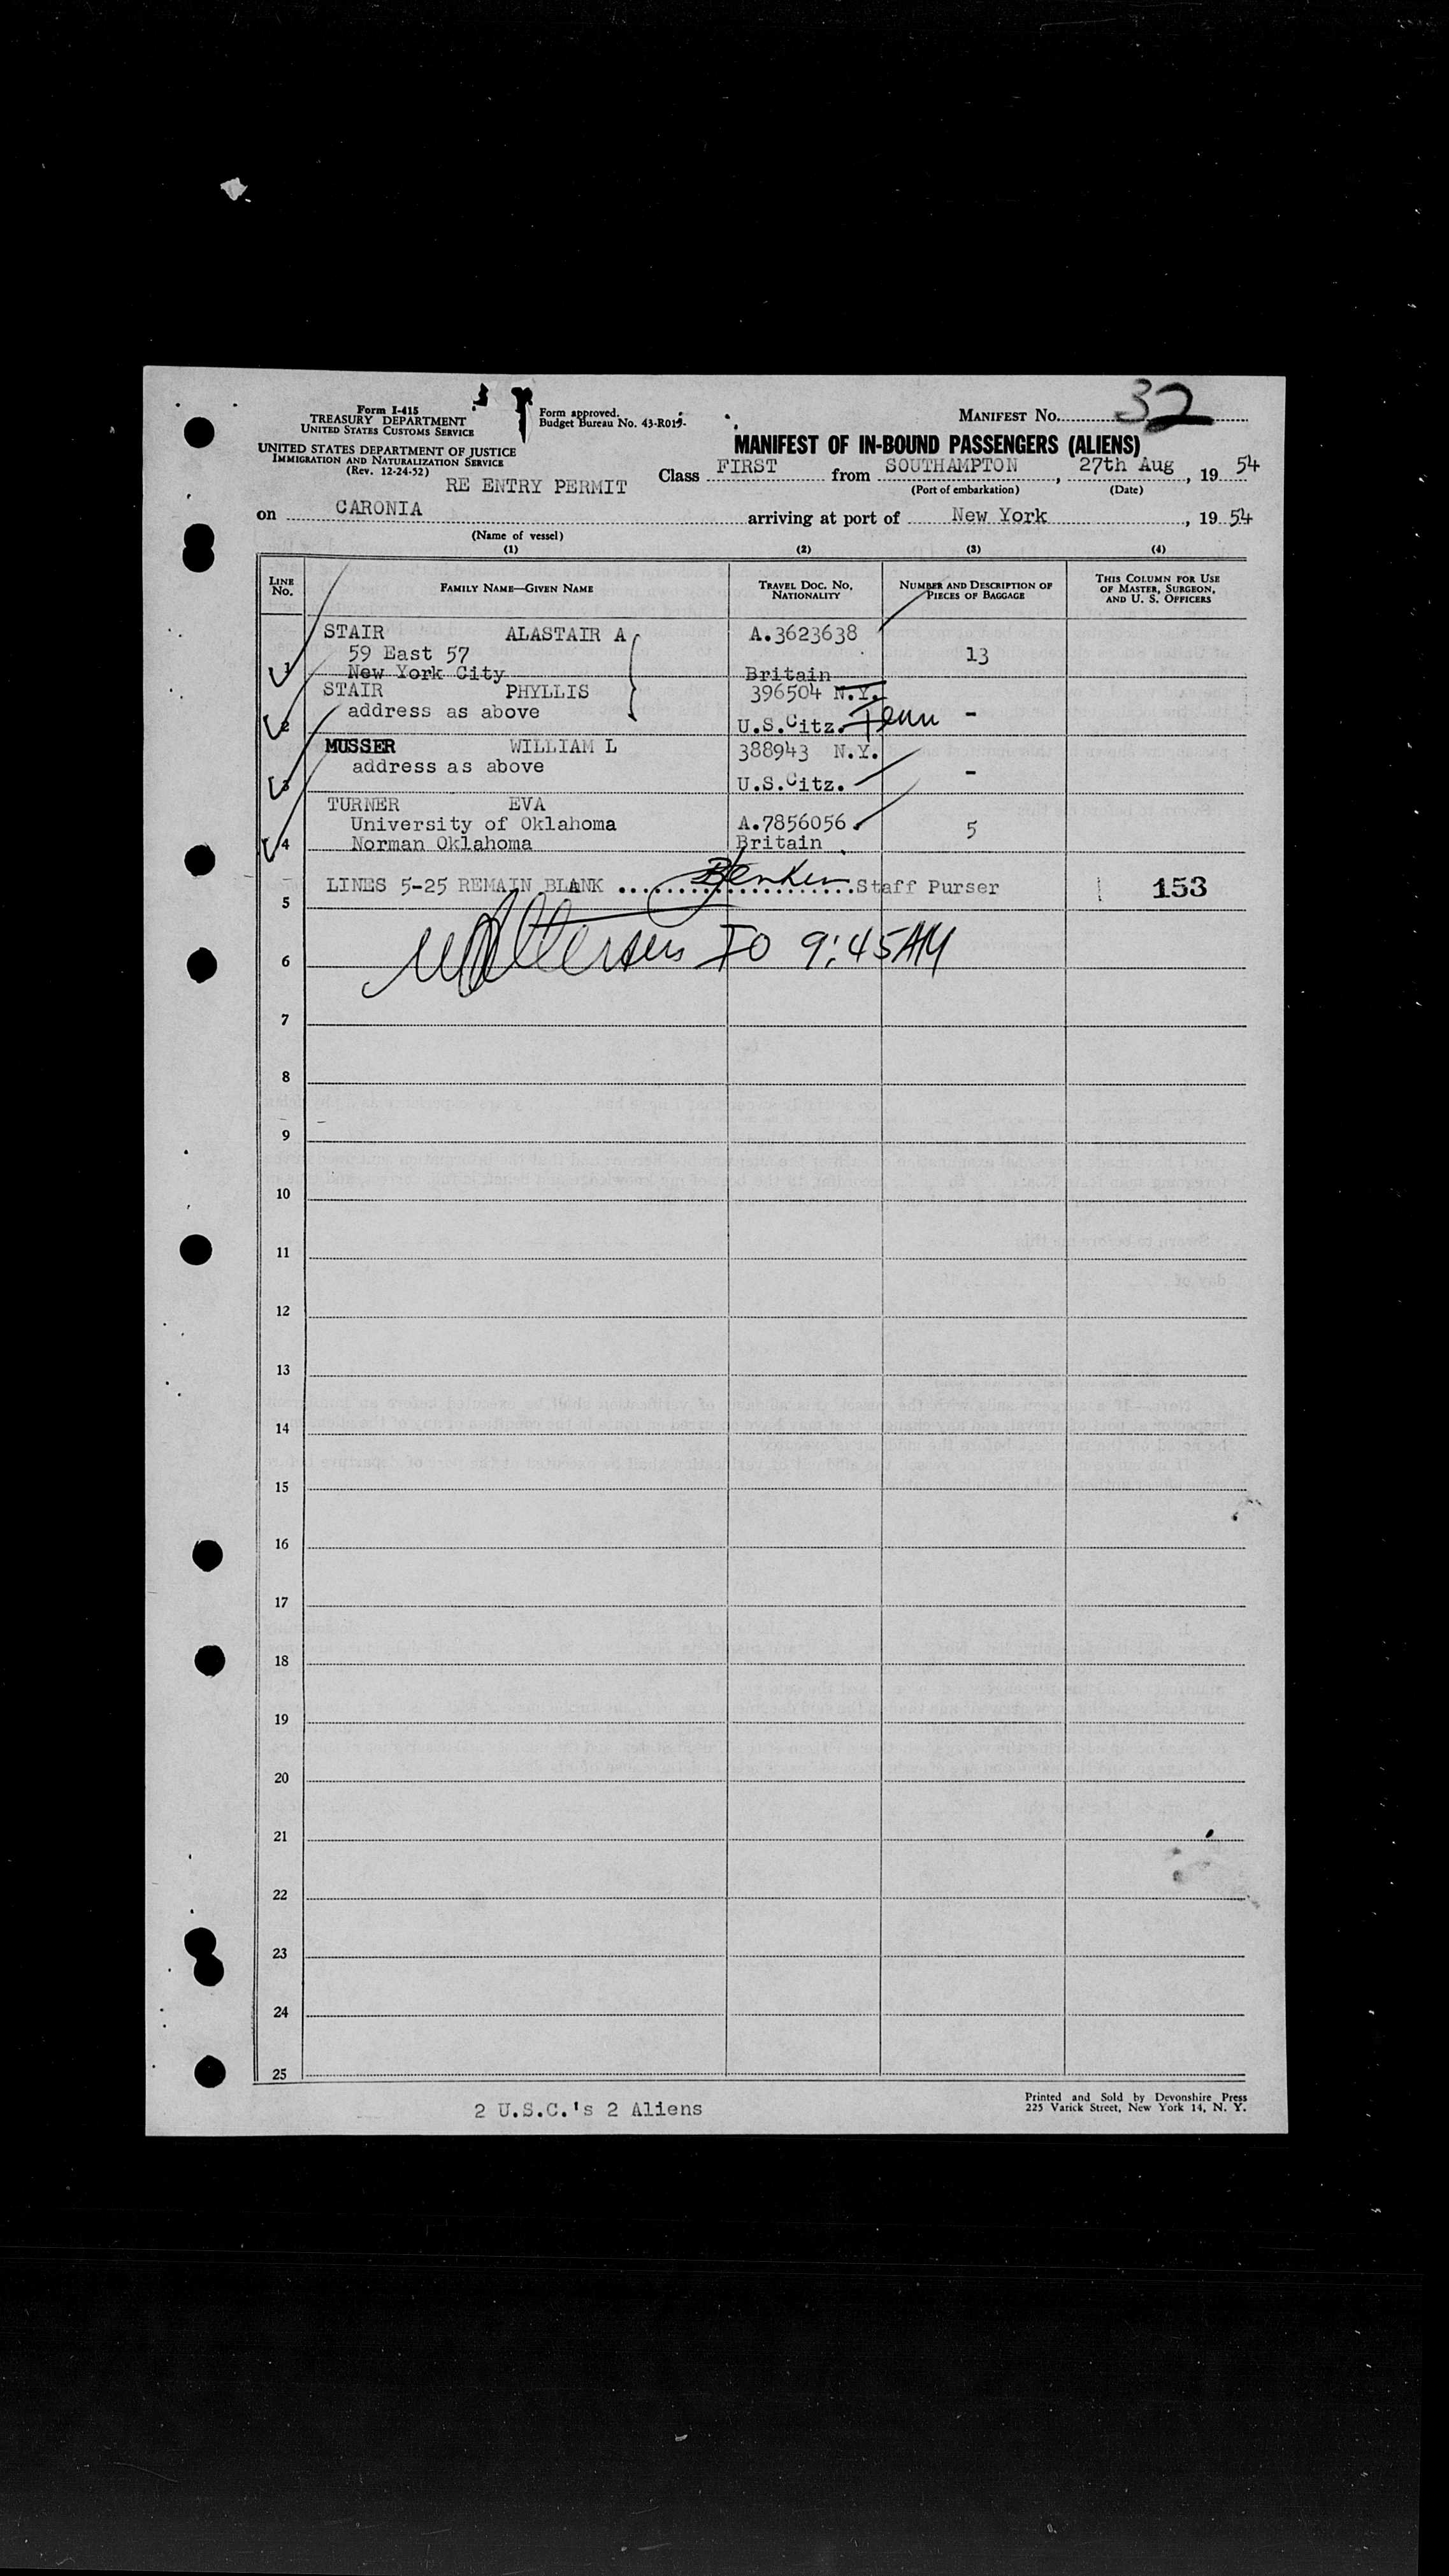 Form I-415
TREASURY DEPARTMENT
UNITED STATES CUSTOMS SERVICE
UNITED STATES DEPARTMENT OF JUSTICE
IMMIGRATION AND NATURALIZATION SERVICE
(Rev. 12-24-52)
Form approved.
Budget Bureau No. 43-R019-
MANIFEST No. 32
MANIFEST OF IN-BOUND PASSENGERS (ALIENS)
RE ENTRY PERMIT
Class FIRST from SOUTHAMPTON, 27th Aug, 19 54
(Port of embarkation) (Date)
on CARONIA arriving at port of New York, 19 54
(Name of vessel)
(1) (2) (3) (4)
LINE No. FAMILY NAME—GIVEN NAME TRAVEL DOC. NO. NATIONALITY NUMBER AND DESCRIPTION OF PIECES OF BAGGAGE THIS COLUMN FOR USE OF MASTER, SURGEON, AND U. S. OFFICERS
STAIR ALASTAIR A A.3623638
59 East 57 13
1 New York City Britain
STAIR PHYLLIS 396504 N.Y.
address as above -
2 U.S.Citz. Penn
MUSSER WILLIAM L 388943 N.Y.
address as above -
3 U.S.Citz.
TURNER EVA
University of Oklahoma A.7856056. 5
4 Norman Oklahoma Britain
LINES 5-25 REMAIN BLANK ..................... Staff Purser 153
5
9:45AM
6
7
8
9
10
11
12
13
14
15
16
17
18
19
20
21
22
23
24
25
2 U.S.C.'s 2 Aliens
Printed and Sold by Devonshire Press
225 Varick Street, New York 14, N. Y.